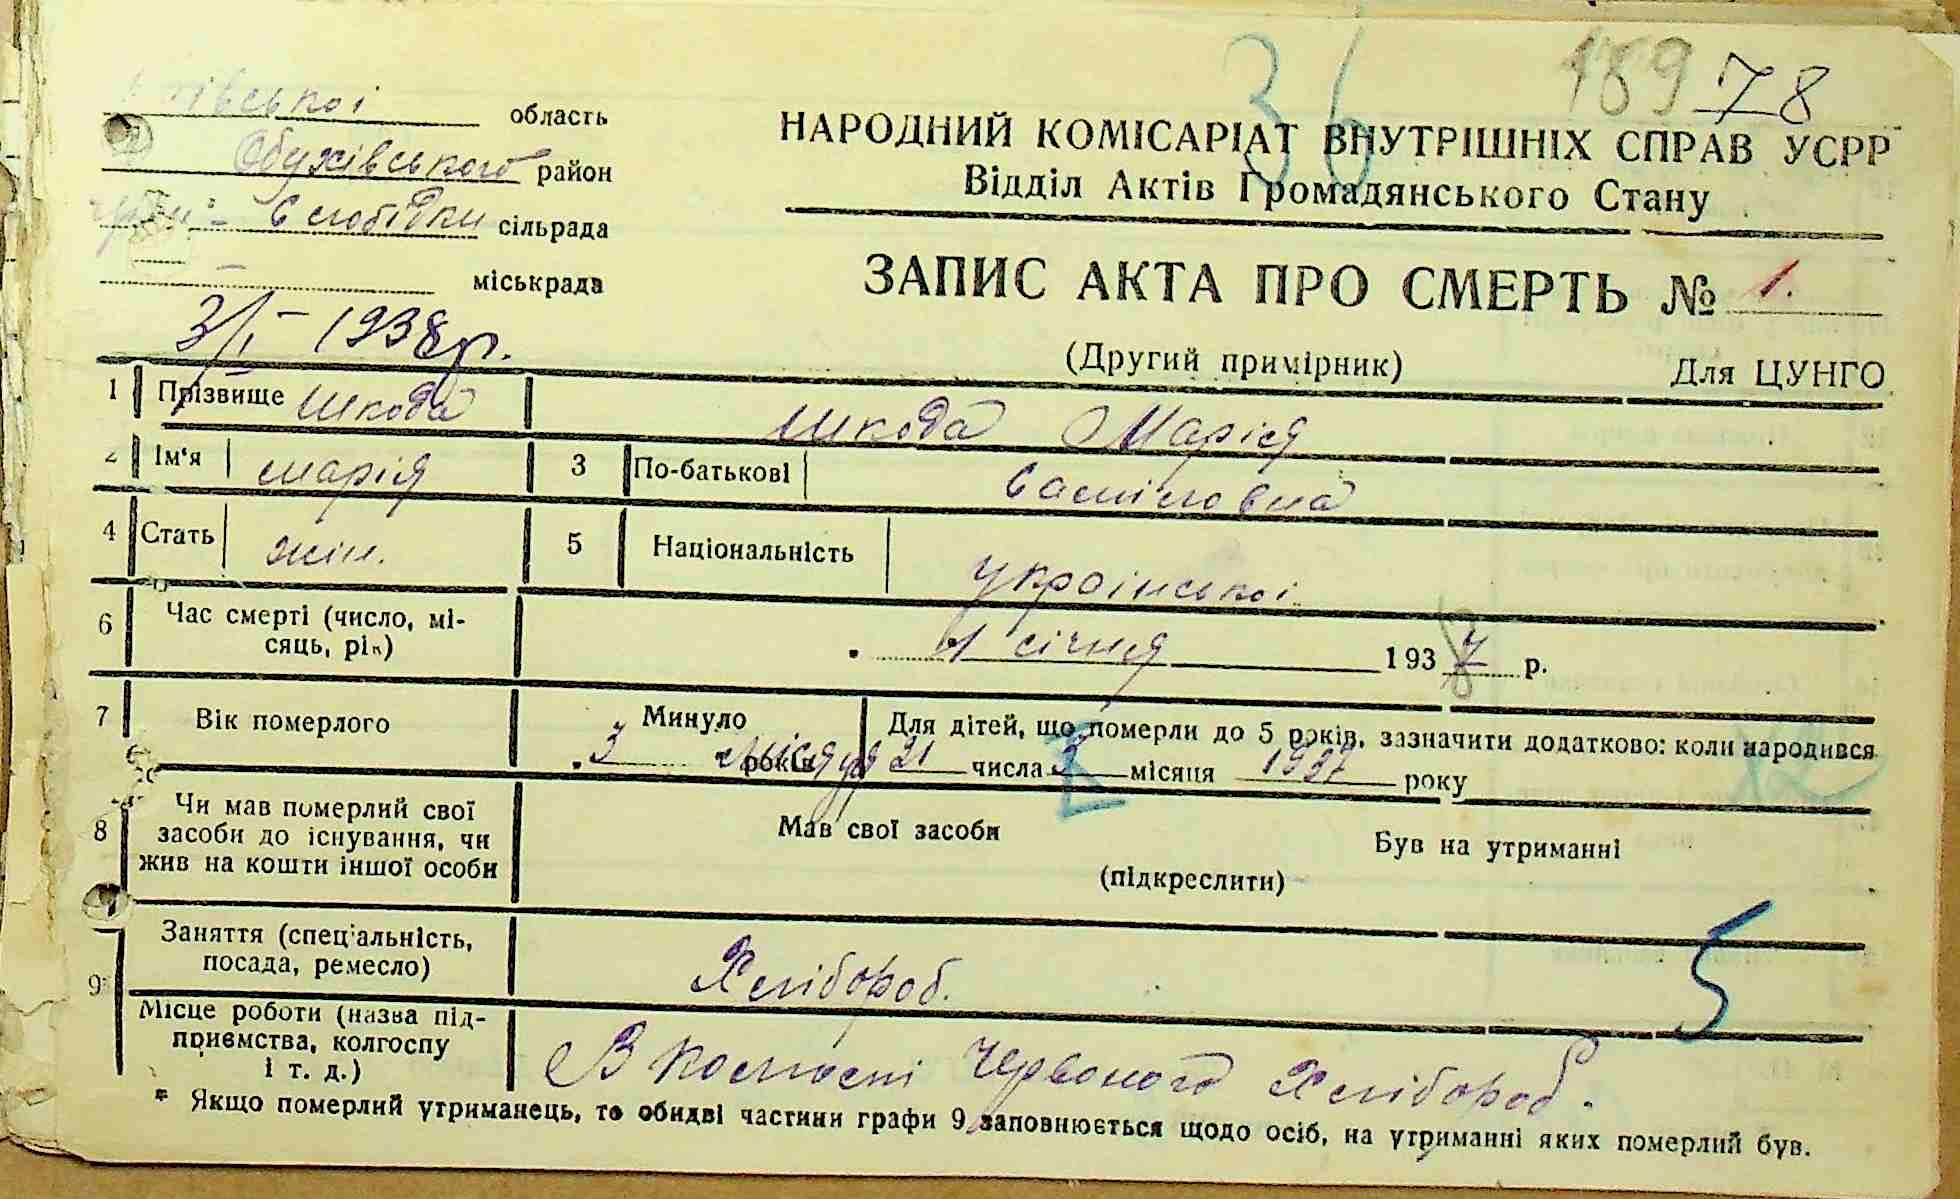 36 189 78
область
Обухівського район
Слобідки сільрада
міськрада
3/I – 1938 р.
НАРОДНИЙ КОМІСАРІАТ ВНУТРІШНІХ СПРАВ УСРР
Відділ Актів Громадянського Стану
ЗАПИС АКТА ПРО СМЕРТЬ № 1.
(Другий примірник) Для ЦУНГО
1 Прізвище Шкода Шкода Марія
2 Ім'я марія 3 По-батькові
4 Стать жін. 5 Національність української
6 Час смерті (число, мі-
сяць, рік) 1 січня 1938 р.
7 Вік померлого Минуло 3 місяця років
Для дітей, що померли до 5 років, зазначити додатково: коли народився
21 числа місяця 1937 року
8 Чи мав померлий свої
засоби до існування, чи
жив на кошти іншої особи
Мав свої засоби Був на утриманні
(підкреслити)
5
9 Заняття (спеціальність,
посада, ремесло) Хлібороб.
Місце роботи (назва під-
приємства, колгоспу
і т. д.) В колгоспі Червоного Хлібороб.
* Якщо померлий утриманець, то обидві частини графи 9 заповнюється щодо осіб, на утриманні яких померлий був.